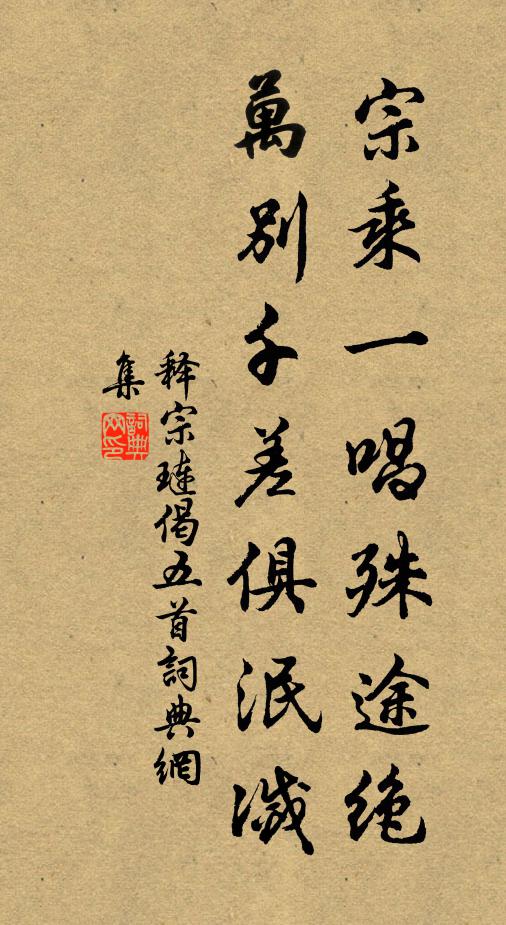 宗乘一唱殊途绝
萬別千差俱泯滅
释宗璉偈五首詞典網
集
詞典網印